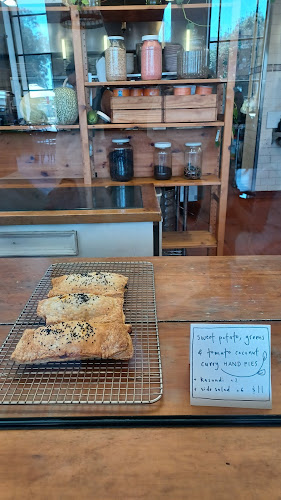 sweet potato, greens
& tomato coconut
curry HAND PIES
• kasundi +2
• side salad +6 $11